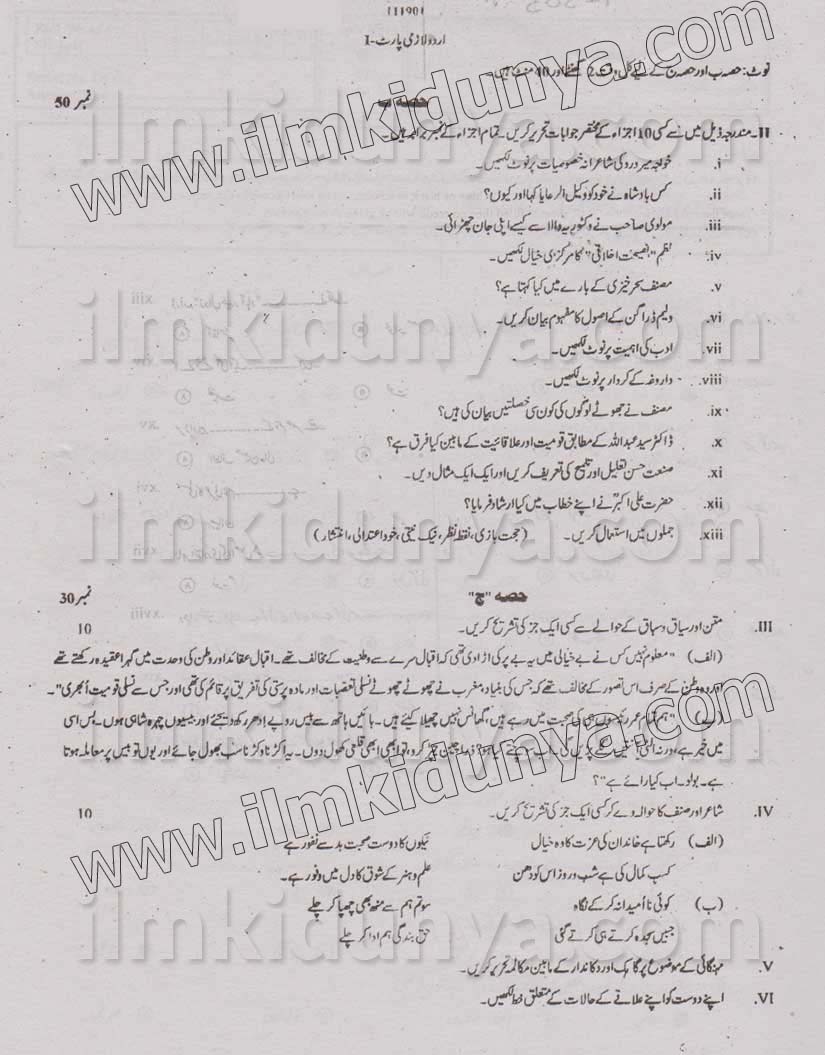 (1190)
اردو لازمی پارٹ-I
نوٹ: حصہ ب اور حصہ ج کے لیے کل وقت 2 گھنٹے اور 40 منٹ ہیں۔
حصہ ب نمبر 50
II۔ مندرجہ ذیل میں سے کسی 10 اجزاء کے مختصر جوابات تحریر کریں۔ تمام اجزاء کے نمبر برابر ہیں۔
i. خواجہ میر درد کی شاعرانہ خصوصیات پر نوٹ لکھیں۔
ii. کس بادشاہ نے خود کو وکیل الرعایا کہا اور کیوں؟
iii. مولوی صاحب نے وکٹوریہ والا سے کیسے اپنی جان چھڑائی۔
iv. نظم "نصیحت اخلاقی" کا مرکزی خیال لکھیں۔
v. مصنف سحر خیزی کے بارے میں کیا کہتا ہے؟
vi. ولیم ڈراگن کے اصول کا مفہوم بیان کریں۔
vii. ادب کی اہمیت پر نوٹ لکھیں۔
viii. داروغہ کے کردار پر نوٹ لکھیں۔
ix. مصنف نے جھوٹے لوگوں کی کون سی خصلتیں بیان کی ہیں؟
x. ڈاکٹر سید عبداللہ کے مطابق قومیت اور علاقائیت کے مابین کیا فرق ہے؟
xi. صنعت حسن تعلیل اور تلمیح کی تعریف کریں اور ایک ایک مثال دیں۔
xii. حضرت علی اکبرؓ نے اپنے خطاب میں کیا ارشاد فرمایا؟
xiii. جملوں میں استعمال کریں۔ (حجت بازی، نقطہ نظر، نیک نیتی، خود اعتدالی، انتشار)
حصہ "ج" نمبر 30
III. متن اور سیاق و سباق کے حوالے سے کسی ایک جز کی تشریح کریں۔ 10
(الف) "معلوم نہیں کس نے بے خیالی میں یہ بے پر کی اڑا دی تھی کہ اقبال سرے سے وطنیت کے مخالف تھے۔ اقبال عقائد اور وطن کی وحدت میں گہرا عقیدہ رکھتے تھے
اور وہ وطن کے صرف اس تصور کے مخالف تھے کہ جس کی بنیاد مغرب نے چھوٹے چھوٹے نسلی تعصبات اور مادہ پرستی کی تفریق پر قائم کی تھی اور جس سے نسلی قومیت اُبھری"۔
(ب) "ہم تمام عمر رئیسوں ہی کی صحبت میں رہے ہیں، گھانس نہیں چھیلا کیے ہیں۔ بائیں ہاتھ سے بیس روپے ادھر رکھ دیجئے اور بیسیوں چہرہ شاہی ہوں۔ بس اسی
میں خیر ہے، ورنہ الٹی آنتیں گلے پڑیں گی۔ اب سوچتے کیا ہو؟ ذرا چین چپڑ کرو، تو ابھی ابھی قلعی کھول دوں۔ یہ اکڑنا وکڑنا سب بھول جائے اور یوں تو بیس پر معاملہ ہوتا
ہے۔ بولو۔ اب کیا رائے ہے"؟
IV. شاعر اور صنف کا حوالہ دے کر کسی ایک جز کی تشریح کریں۔ 10
(الف) رکھتا ہے خاندان کی عزت کا وہ خیال نیکوں کا دوست صحبت بد سے نفور ہے
کسب کمال کی ہے شب و روز اس کو دھن علم و ہنر کے شوق کا دل میں وفور ہے۔
(ب) کوئی نا اُمیدانہ کر کے نگاہ سو تم ہم سے منھ بھی چھپا کر چلے
جبیں سجدہ کرتے ہی کرتے گئی حق بندگی ہم ادا کر چلے
V. مہنگائی کے موضوع پر گاہک اور دکاندار کے مابین مکالمہ تحریر کریں۔
VI. اپنے دوست کو اپنے علاقے کے حالات کے متعلق خط لکھیں۔
www.ilmkidunya.com
ilmkidunya.com